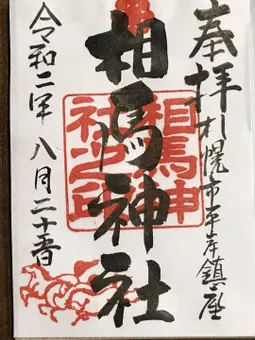 奉拝 札幌市平岸鎮座
相馬神社
相馬神
社之印
令和二年 八月二十一日